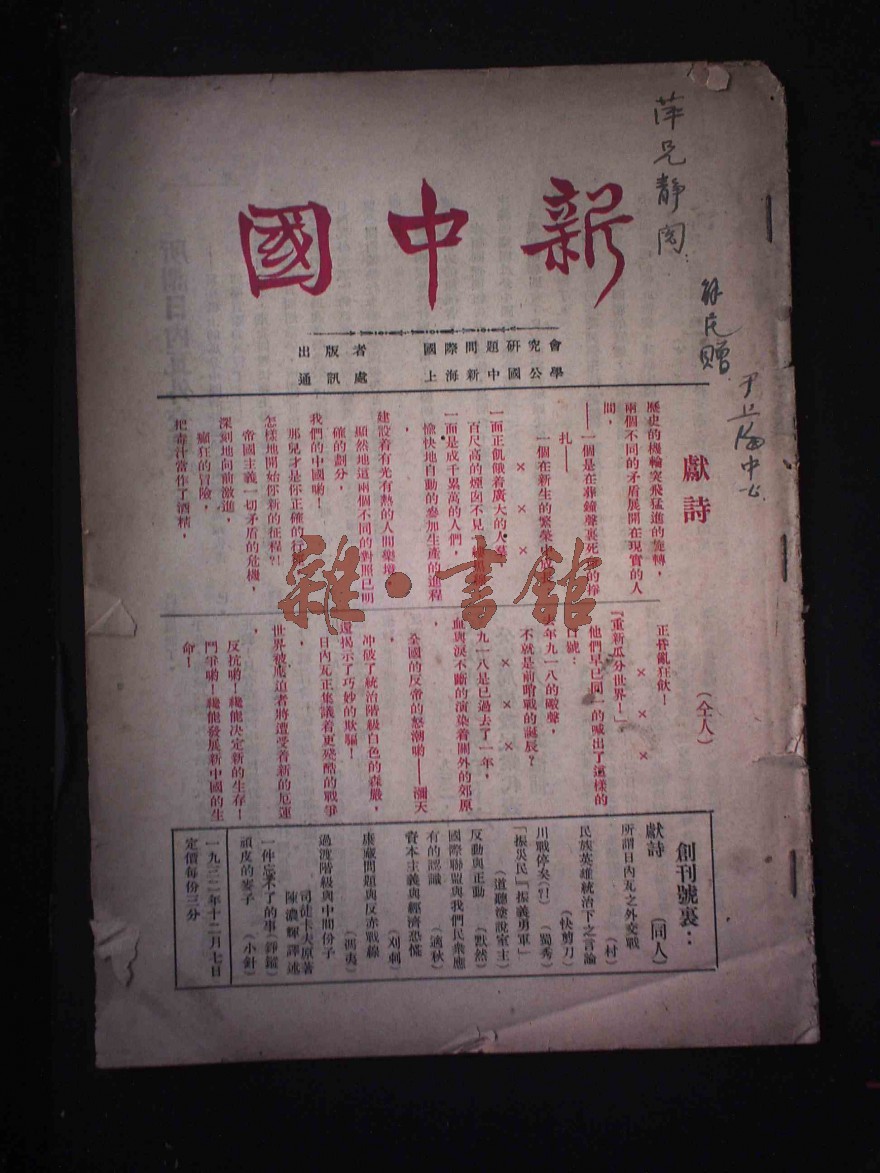 新中國
出版者 國際問題研究會
通訊處 上海新中國公學
萍兄靜閱
贈
于上海中公
獻詩
(仝人)
歷史的機輪突飛猛進的旋轉，
兩個不同的矛盾展開在現實的人
間，
——一個是在葬鐘聲裏死的掙
扎——
一個在新生的繁榮
×××
一面正飢餓着廣大的人羣
百尺高的煙囱不見
一面是成千累萬的人們，
愉快地自動的參加生產的進程
，
建設着有光有熱的人間樂境
顯然地這兩個不同的對照已明
確的劃分，
我們的中國喲！
那兒才是你正確的行
怎樣地開始你新的征程?!
帝國主義一切矛盾的危機，
深刻地向前激進，
瘋狂的冒險，
把毒汁當作了酒精，
正昏亂狂飲！
×××
「重新瓜分世界！」
他們早已同一的喊出了這樣的
口號：
去年九一八的礮聲，
不就是前哨戰的誕辰？
×××
九一八是已過去了一年，
血與淚不斷的演染着關外的郊原
，
全國的反帝的怒潮喲——瀰天
，
冲破了統治階級白色的森嚴，
還揭示了巧妙的欺騙！
日內瓦正集議着更殘酷的戰爭
，
世界被壓迫者將遭受着新的厄運
，
反抗喲！纔能決定新的生存！
鬥爭喲！纔能發展新中國的生
命！
創刊號裏：
獻詩 (同人)
所謂日內瓦之外交戰
(村)
民族英雄統治下之言論
(快剪刀)
川戰停矣(!!) (蜀秀)
「振災民」「振義勇軍」
(道聽塗說室主)
反動與正動 (默然)
國際聯盟與我們民衆應
有的認識 (適秋)
資本主義與經濟恐慌
(刈刺)
康藏問題與反赤戰線
(馮夷)
過渡階級與中間份子
司徒卡夫原著
陳濃輝譯述
一件忘不了的事(錚鏦)
頑皮的麥子 (小針)
一九三二年十二月七日
定價每份三分
雜·書館